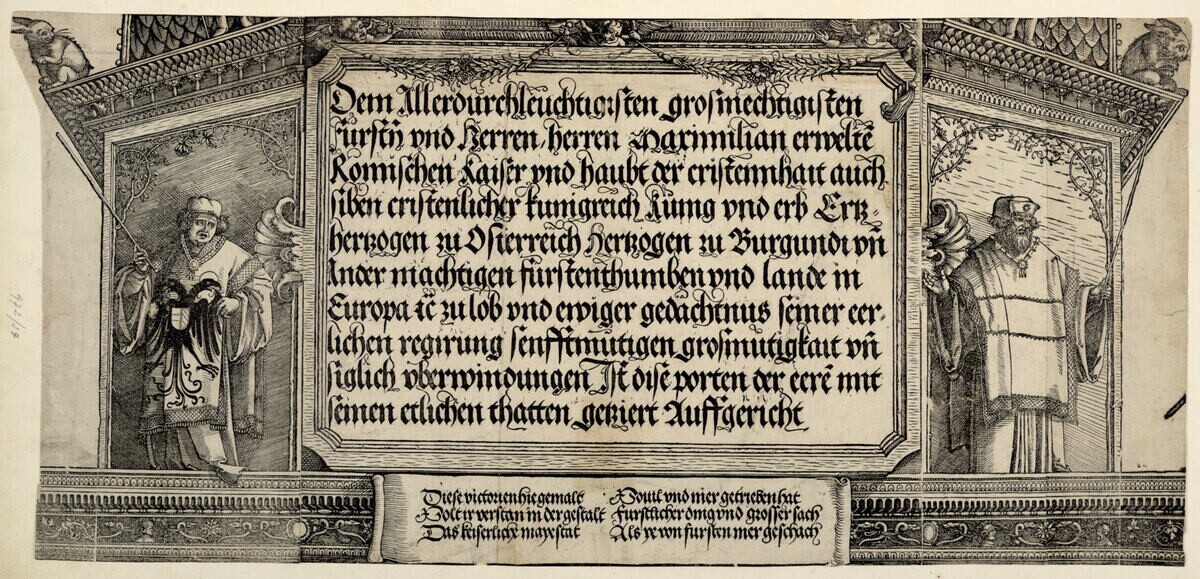 Dem Allerdurchleuchtigisten grosmechtigisten
fürstn̄ vnd Herren, herren Maximilian erweltē
Romischen Kaiser vnd haubt der cristennhait auch
siben cristenlicher kunigreich Künig vnd erb Ertz-
hertzogen zu Osterreich Hertzogen zu Burgundi vn̄
Ander machtigen fürstenthumben vnd lande in
Europa ꝛc̄ zu lob vnd ewiger gedächtnus seiner eer-
lichen regirung sennfftmütigen grosmutigkait vn̄
siglich vberwindungen Ist dise porten der eerē mit
seinen etlichen thatten getziert Auffgericht
Diese victorien hie gemalt
Wolt ir verstan in der gestalt
Das keiserliche mayestat
Souil vnd mer getrieben hat
Furstlicher ding vnd grosser sach
Als ye von fursten mer geschach